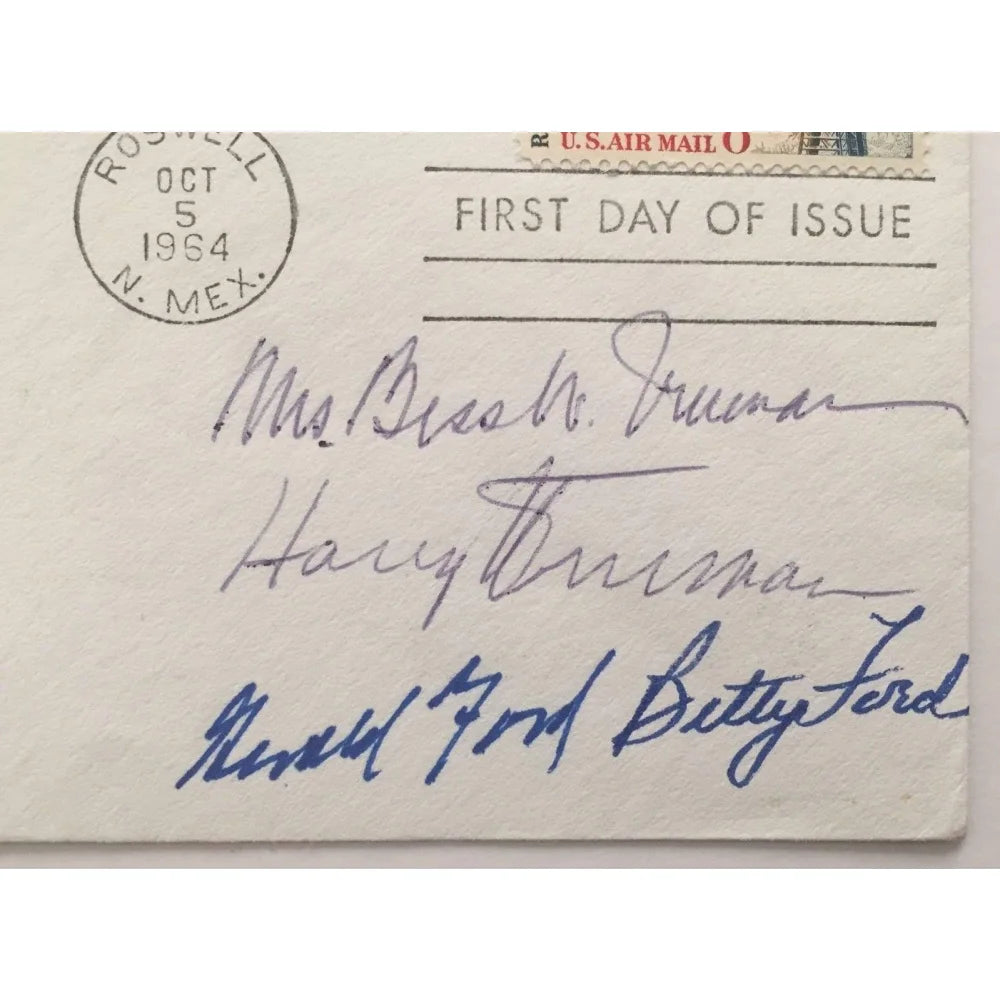 R
U.S. AIR MAIL
ROSWELL
OCT
5
1964
N. MEX.
FIRST DAY OF ISSUE
Mrs. Bess W. Truman
Harry Truman
Gerald Ford Betty Ford